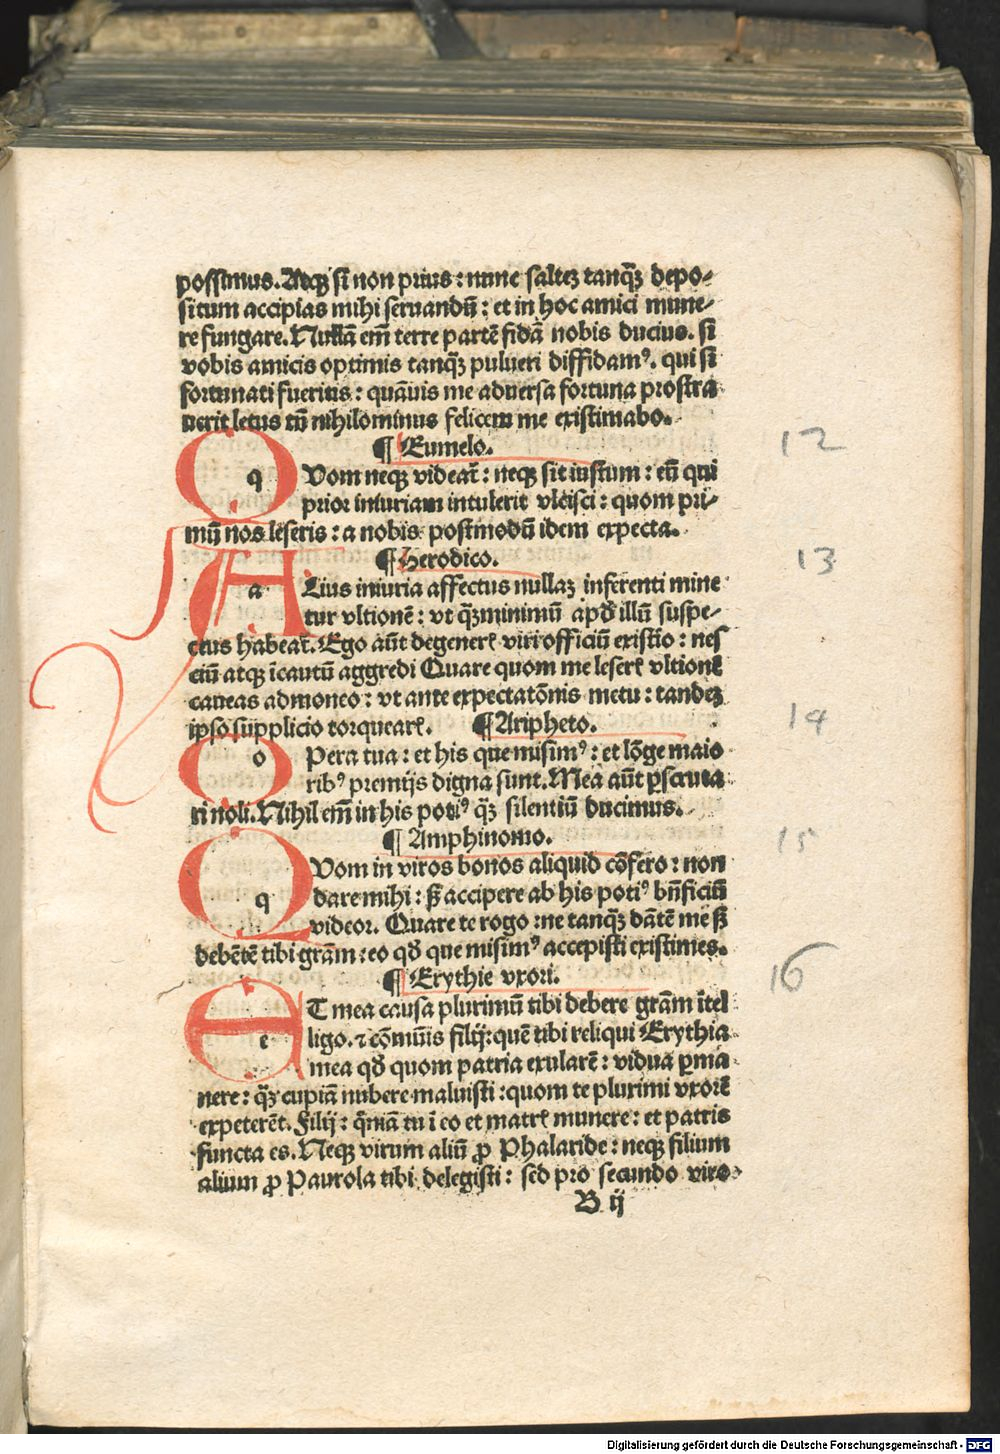 possimus. Atqꝫ si non prius: nunc salteꝫ tanqꝫ̄ depo-
situm accipias mihi seruandū: et in hoc amici mune-
re fungare. Nullā em̄ terre partē fidā nobis ducius. si
vobis amicis optimis tanqꝫ̄ pulueri diffidamꝰ. qui si
fortunati fueritis: quāuis me aduersa fortuna prostra
uerit letus tn̄ nihilominus felicem me existimabo.
12
¶ Eumelo.
q Vom neqꝫ videat̄: neqꝫ sit iustum: eū qui
prior iniuriam intulerit vlcisci: quom pri-
mū nos leseris: a nobis postmodū idem expecta.
13
¶ Herodico.
a Lius iniuria affectus nullaꝫ inferenti mine
tur vltionē: vt qꝫ̄minimū apd̄ illū suspe-
ctus habeat̄. Ego aūt degenerꝭ viri officiū existio: nes
ciū atqꝫ īcautū aggredi Quare quom me leserꝭ vltionē
caueas admoneo: vt ante expectatōnis metu: tandeꝫ
ipso supplicio torquearꝭ. ¶ Aripheto. 14
o Pera tua: et his que misimꝰ: et lōge maio
ribꝰ premijs digna sunt. Mea aūt ꝑscruta
ri noli. Nihil em̄ in his potiꝰ qꝫ̄ silentiū ducimus.
15
¶ Amphinomo.
q Vom in viros bonos aliquid cōfero: non
dare mihi: sꝫ accipere ab his potiꝰ bn̄ficiū
videor. Quare te rogo: ne tanqꝫ̄ dātē me sꝫ
debētē tibi grām: eo qd̄ que misimꝰ accepisti existimes.
16
¶ Erythie vxori.
e T mea causa plurimū tibi debere grām ītel
ligo. ⁊ cōmūis filij: quē tibi reliqui Erythia
mea qd̄ quom patria exularē: vidua ꝑma
nere: qꝫ̄ cupiā nubere maluisti: quom te plurimi vxorē
expeterēt. Filij: qm̄iā tu ī eo et matrꝭ munere: et patris
functa es. Neqꝫ virum aliū ꝓ Phalaride: neqꝫ filium
alium ꝓ Paurola tibi delegisti: sed pro secundo viro
B ij
Digitalisierung gefördert durch die Deutsche Forschungsgemeinschaft - DFG